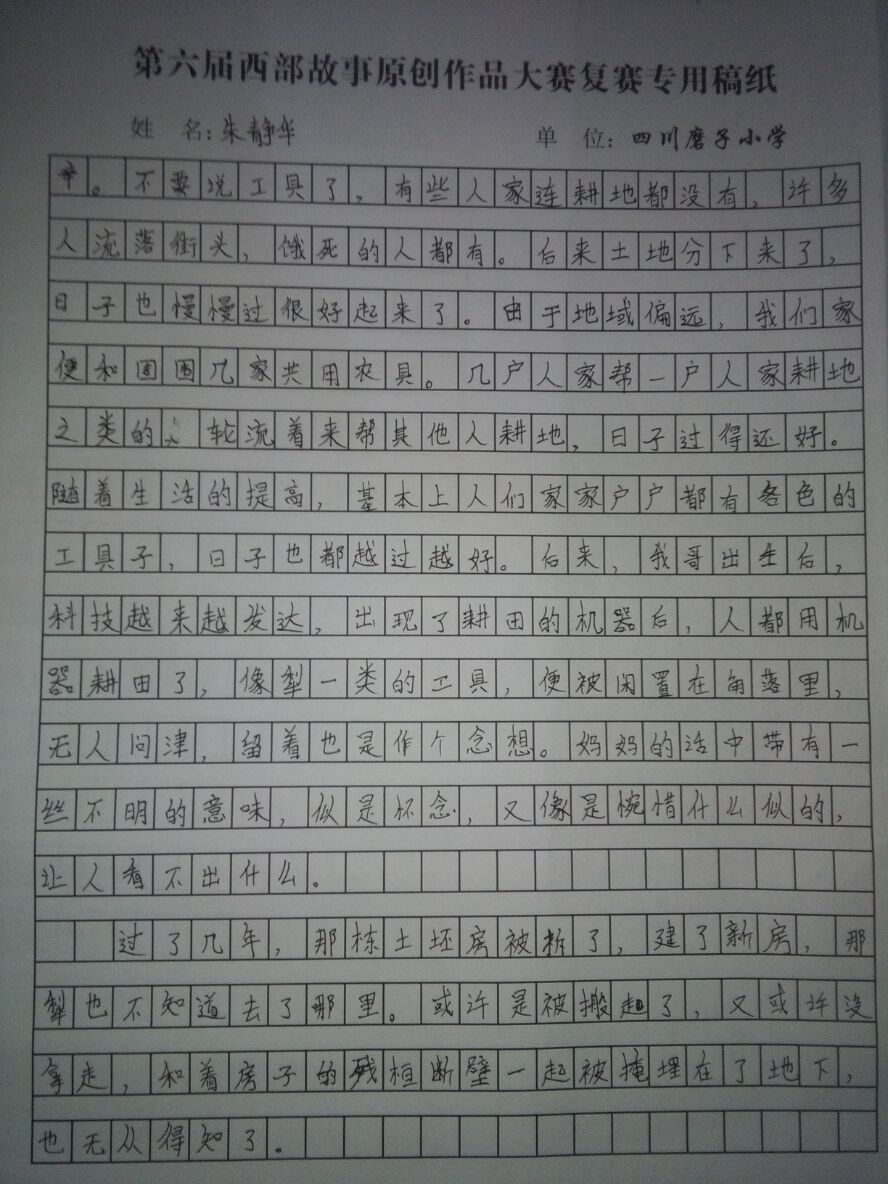 第六届西部故事原创作品大赛复赛专用稿纸
姓 名：朱静华 单 位：四川磨子小学
。不要说工具了，有些人家连耕地都没有，许多
人流落街头，饿死的人都有。后来土地分下来了，
日子也慢慢过很好起来了。由于地域偏远，我们家
便和围几家共用农具。几户人家帮一户人家耕地
之类的轮流着来帮其他人耕地，日子过得还好。
随着生活的提高，基本上人们家家户户都有各色的
工具子，日子也都越过越好。后来，我哥出生后，
科技越来越发达，出现了耕田的机器后，人都用机
器耕田了，像犁一类的工具，便被闲置在角落里，
无人问津，留着也是作个念想。妈妈的话中带有一
丝不明的意味，似是怀念，又像是惋惜什么似的，
让人看不出什么。
过了几年，那栋土坯房被拆了，建了新房，那
犁也不知道去了那里。或许是被搬起了，又或许没
拿走，和着房子的残桓断壁一起被掩埋在了地下，
也无从得知了。